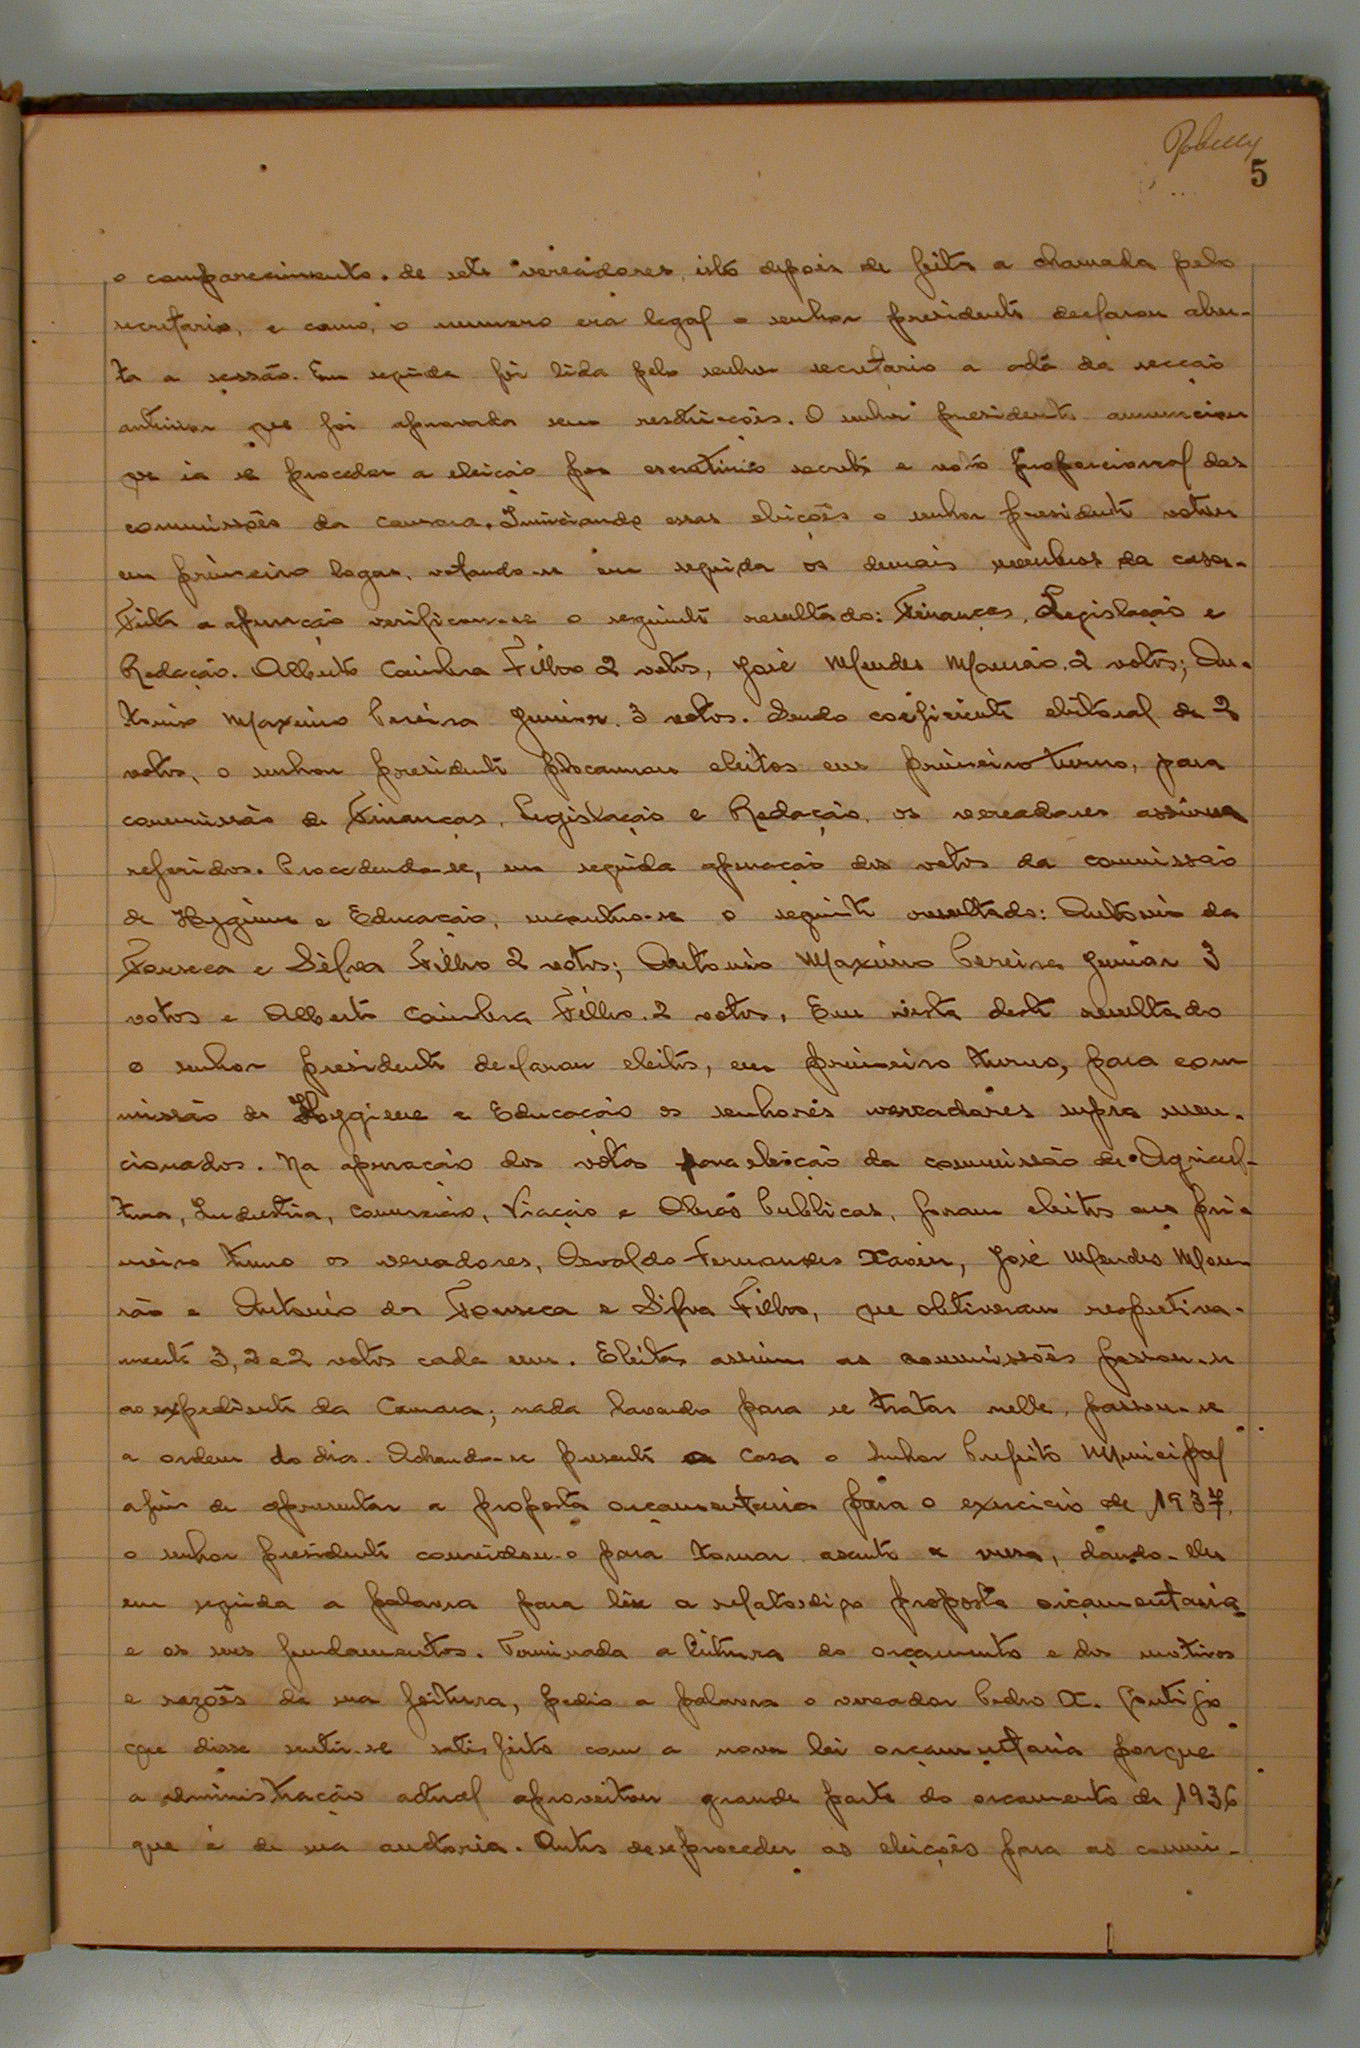 5
o comparecimento de sete vereadores, isto depois de feita a chamada pelo
secretario, e como, o numero era legal o senhor presidente declarou aber-
ta a sessão. Em seguida foi lida pelo senhor secretario a acta da secção
anterior que foi aprovada sem restricções. O senhor presidente annunciou
que ia se proceder a eleição por escrutinio secreto e voto proporcional das
commissões da camara. Iniciando essas eleições o senhor presidente votou
em primeiro logar, votando-se em seguida os demais membros da casa.
Feita a apuração verificou-se o seguinte resultado: Finanças, Legislação e
Redação. Alberto Coimbra Filho 2 votos, José Mendes Mourão, 2 votos; An-
tonio Maximo Pereira Junior. 3 votos. Sendo coeficiente eleitoral de 2
votos, o senhor presidente proclamou eleitos em primeiro turno, para
commissão de Finanças, Legislação e Redação, os vereadores assima
referidos. Procedendo-se, em seguida apuração dos votos da commissão
de Hygiene e Educação, encontrou-se o seguinte resultado: Antonio da
Fonseca e Silva Filho 2 votos; Antonio Maximo Pereira Junior 3
votos e Alberto Coimbra Filho. 2 votos, Em vista deste resultado
o senhor presidente declarou eleitos, em primeiro turno, para com
missão de Hygiene e Educação os senhores vereadores supra men-
cionados. Na apuração dos votos para eleição da commissão de Agricul-
tura, Industria, Comercio, Viação e Obras Publicas, foram eleitos em pri-
meiro turno os vereadores, Osvaldo Fernandes Xavier, José Mendes Mou-
rão e Antonio da Fonseca e Silva Filho, que obtiveram respetiva-
mente 3, 2 e 2 votos cada um. Eleitas assim as commissões passou-se
ao expediente da Camara; nada havendo para se tratar nelle, passou-se
a ordem do dia. Achando-se presente a casa o senhor Prefeito Municipal
afim de apresentar a proposta orçamentaria para o exercicio de 1937,
o senhor presidente convidou-o para tomar assento a mesa, dando-lhe
em seguida a palavra para lêr a proposta orçamentaria
e os seus fundamentos. Terminada a leitura do orçamento e dos motivos
e razões de sua feitura, pedio a palavra o vereador Pedro A.
que disse sentir-se satisfeito com a nova lei orçamentaria porque
a administração actual aproveitou grande parte do orçamento de 1936
que é de sua auctoria. Antes de se proceder as eleições para as comm-